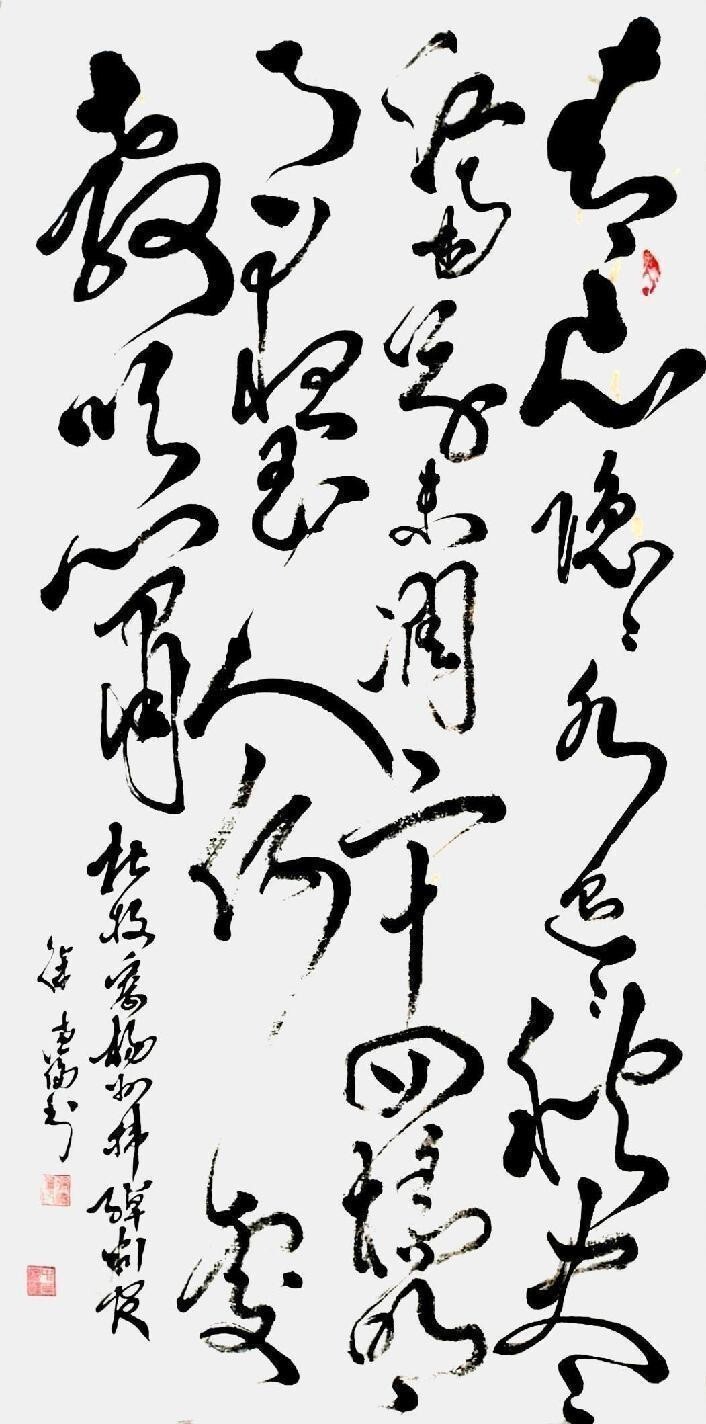 青山隐々水迢々秋尽
江南草未凋二十四桥明
月夜玉人何处
教吹箫
杜牧寄扬州韩绰判官
书